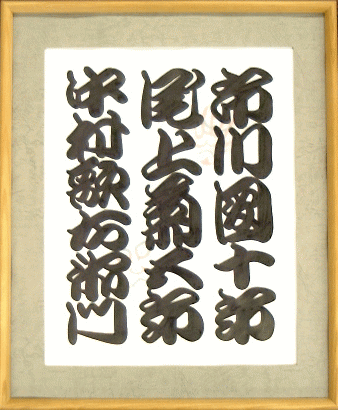 市川團十郎
尾上菊五郎
中村歌右衛門